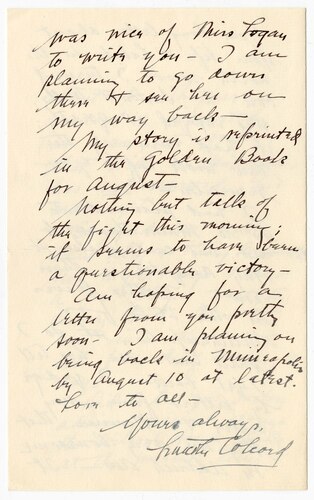 was nice of Miss Logan
to write you - I am
planning to go down
there & see her on
my way back -
My story is reprinted
in the Golden Book
for August -
Nothing but talk of
the fight this morning;
it seems to have been
a questionable victory -
Am hoping for a
letter from you pretty
soon - I am planing on
being back in Minneapolis
by August 10 at latest.
Love to all -
Yours always,
Colcord